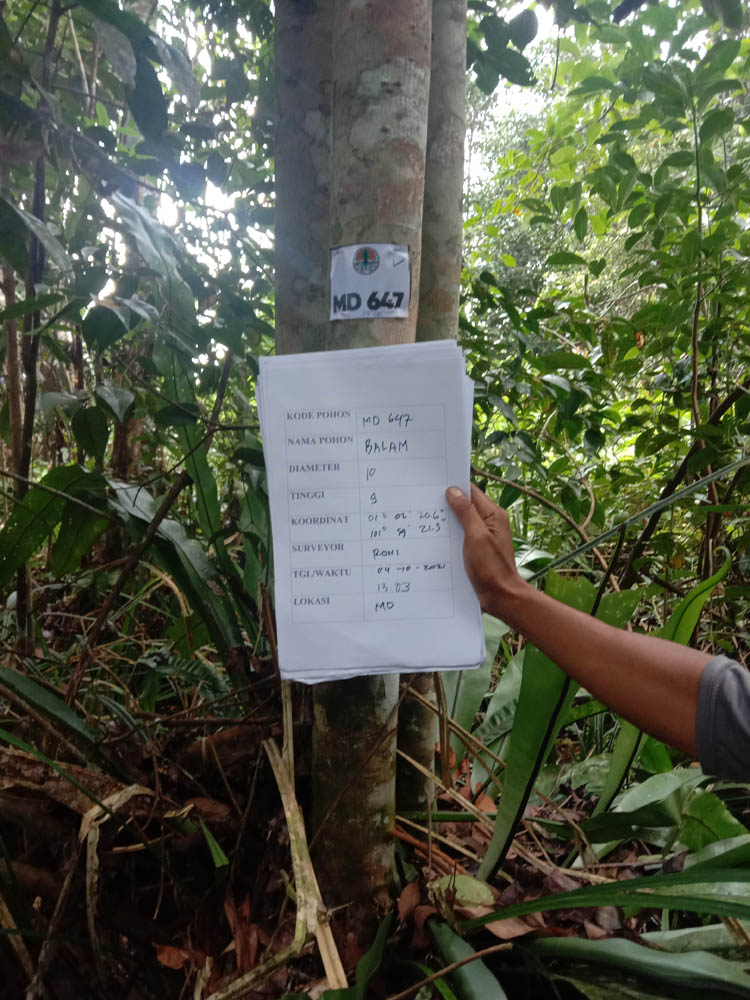 MD 647
KODE POHON MD 647
NAMA POHON BALAM
DIAMETER 10
TINGGI 9
KOORDINAT 01° 02' 20.6"
101° 59' 21.5"
SURVEYOR ROMI
TGL/WAKTU 04-10-2021
13.03
LOKASI MD